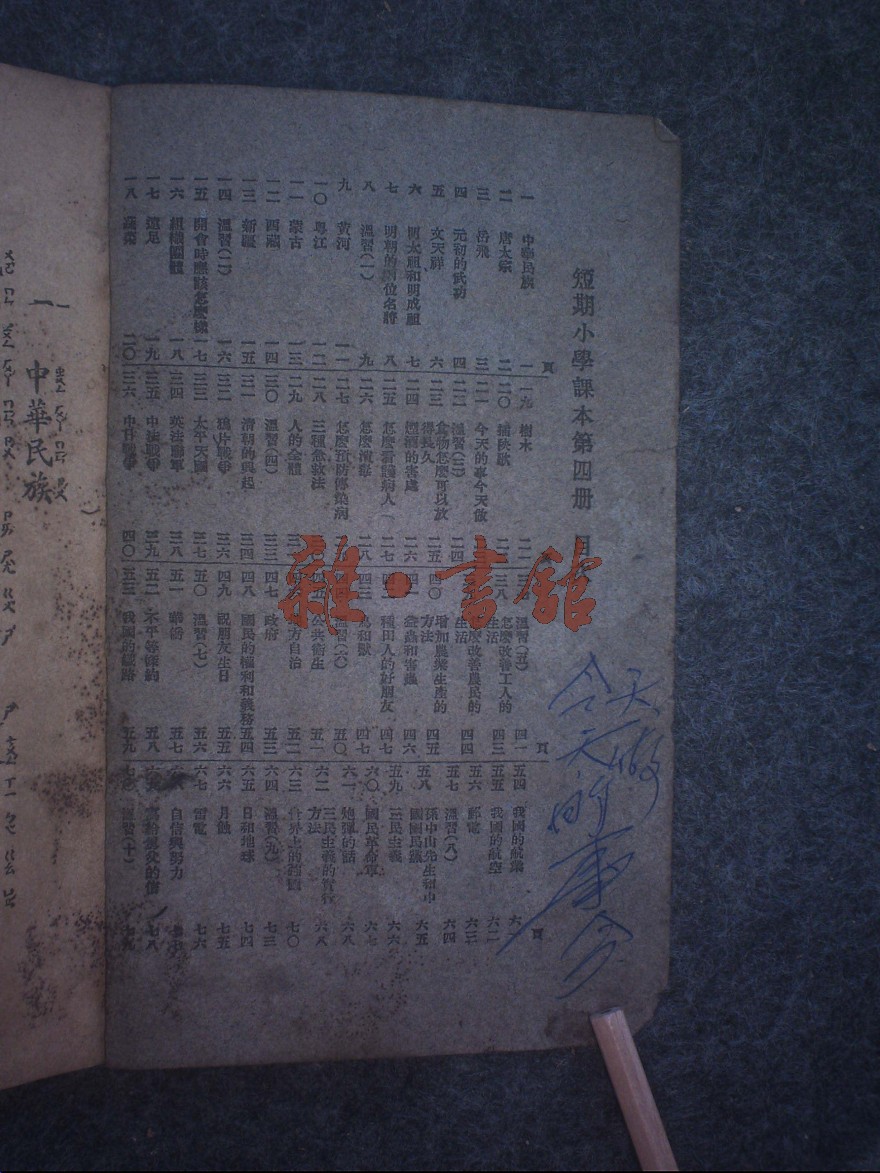 短期小學課本第四册 目
頁
一 中華民族 一
二 唐太宗 二
三 岳飛 三
四 元初的武功 四
五 文天祥 六
六 明太祖和明成祖 七
七 明朝的兩位名將 八
八 溫習(一) 九
九 黃河 一一
一〇 粵江 一二
一一 蒙古 一三
一二 西藏 一四
一三 新疆 一五
一四 溫習(二) 一六
一五 開會時應該怎麼樣 一七
一六 組織團體 一八
一七 遠足 一九
一八 蔬菜 二〇
一九 樹木 二二
二〇 插秧歌
二一 今天的事今天做
二二 溫習(三) 二四
二三 食物怎麼可以放得長久 二五
二四 煙酒的害處 二六
二五 怎麼看護病人 二七
二六 怎麼演說 二八
二七 怎麼預防傳染病
二八 三種急救法
二九 人的全體
三〇 溫習(四) 三三
三一 清朝的興起 三四
三二 鴉片戰爭 三六
三三 太平天國 三七
三四 英法聯軍 三八
三五 中法戰爭 三九
三六 中日戰爭 四〇
頁
溫習(五) 四一
三八 怎麼改善工人的生活 四三
怎麼改善農民的生活 四四
四〇 增加農業生產的方法 四五
益蟲和害蟲 四六
種田人的好朋友 四七
四三 鳥和獸 四七
溫習(六) 五〇
公共衛生 五一
地方自治 五二
四七 政府 五三
四八 國民的權利和義務 五四
四九 祝朋友生日 五五
五〇 溫習(七) 五六
五一 華僑 五七
五二 不平等條約 五八
五三 我國的鐵路 五九
頁
五四 我國的航業 六一
五五 我國的航空 六二
五六 郵電 六三
五七 溫習(八) 六四
五八 孫中山先生和中國國民黨 六五
五九 三民主義 六六
六〇 國民革命軍 六七
六一 炮彈的話 六八
六二 三民主義的實行方法 六八
六三 世界上的列強 七〇
六四 溫習(九) 七三
六五 日和地球 七四
六六 月蝕 七五
六七 雷電 七六
六八 自信與努力 七七
寫給親友的信 七八
溫習(十)
今天的事今天做
雜·書館
一 中華民族